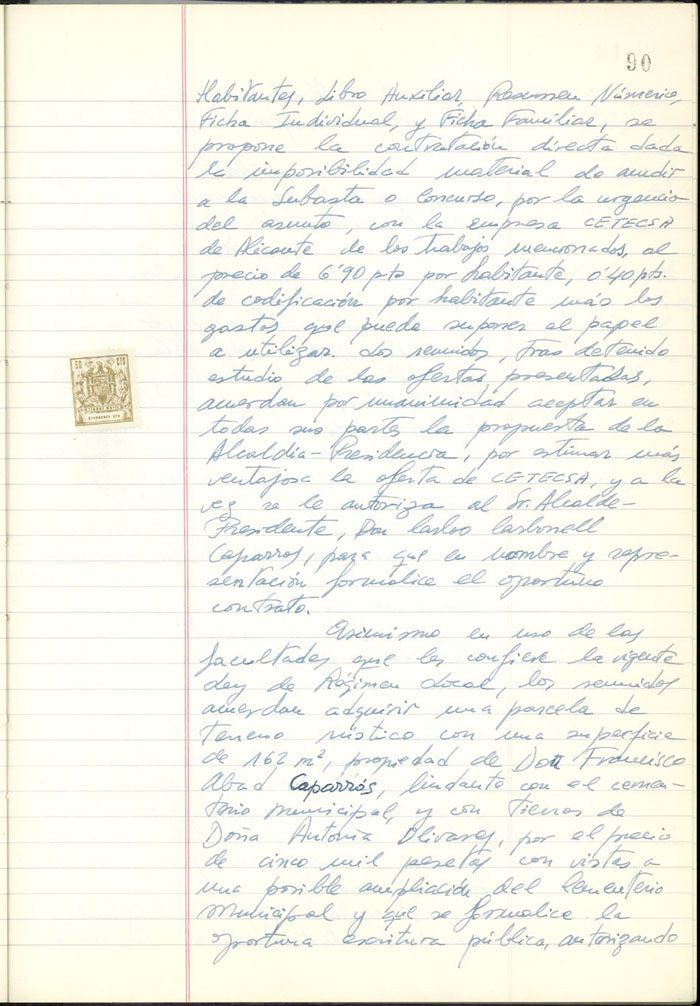 90
Habitantes, Libro Auxiliar, Resumen Númerico,
Ficha Individual, y Ficha Familiar, se
propone la contratación directa dada
la imposibilidad material de acudir
a la Subasta o Concurso, por la urgencia
del asunto, con la empresa CETECSA
de Alicante de los trabajos mencionados, al
precio de 6'90 pts por habitante, 0'40 pts.
de codificación por habitante más los
gastos que pueda suponer el papel
a utilizar. Los reunidos, tras detenido
estudio de las ofertas presentadas,
acuerdan por unanimidad aceptar en
todas sus partes la propuesta de la
Alcaldía-Presidencia, por estimar más
ventajosa la oferta de CETECSA, y a la
vez se le autoriza al Sr. Alcalde-
Presidente, Don Carlos Carbonell
Caparros, para que en nombre y repre-
sentación formalice el oportuno
contrato.
Asimismo en uso de las
facultades que les confiere la vigente
Ley de Régimen Local, los reunidos
acuerdan adquirir una parcela de
terreno rústico con una superficie
de 162 m², propiedad de Don Francisco
Abad Caparrós, lindante con el cemen-
terio municipal, y con tierras de
Doña Antonia Olivares, por el precio
de cinco mil pesetas con vistas a
una posible ampliación del Cementerio
Municipal y que se formalice la
oportuna escritura pública, autorizando
50 CTS